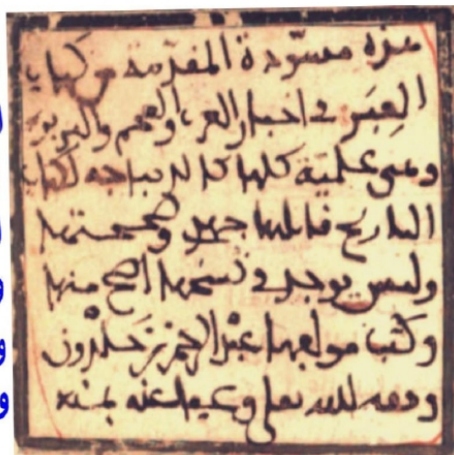 هذه مسودة المقدمة من كتاب
العِبَر في أخبار العرب والعجم والبربر
وهي علمية كلها كالديباجة لكتاب
التاريخ قابلتها جهدي وصححتها
وليس يوجد في نسخها أصح منها
وكتب مؤلفها عبد الرحمن بن خلدون
وفقه الله تعالى وعفا عنه بمنه